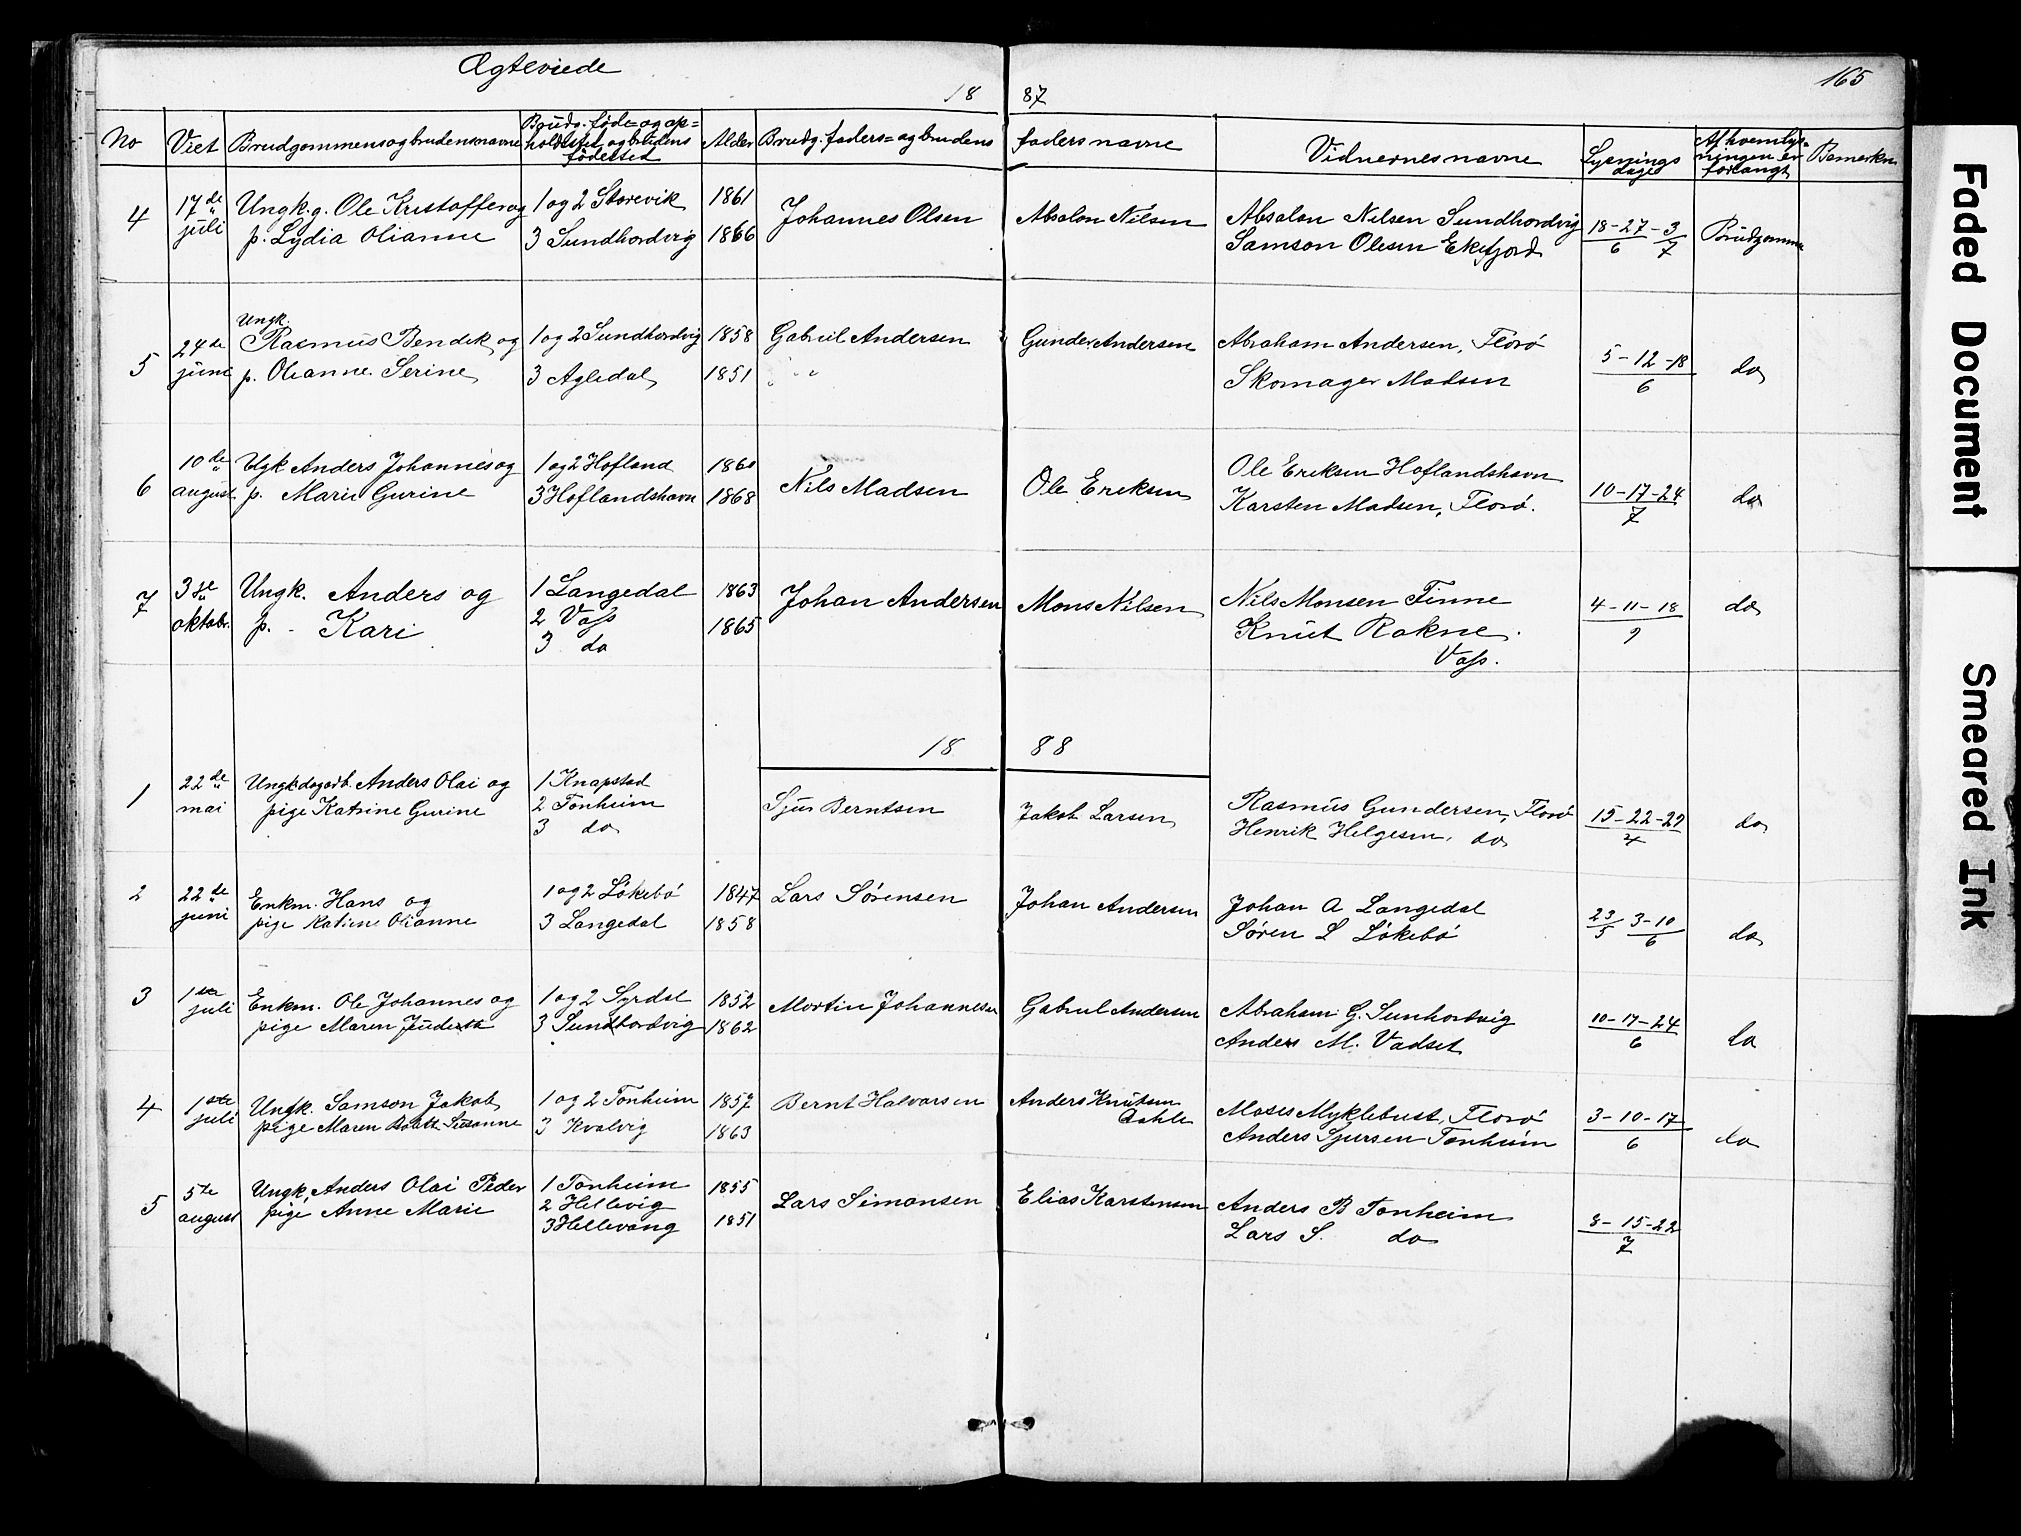 Ægteviede
18 87
165
No Viet Brudgommens og brudens navne Brudg. føde- og op= Alder Brudg. faders= og brudens faders navne Vidnernes navne Lysnings Af hvem lys= Bemerkn
holdssted og brudens dage ningen er
fødested forlangt
4 17de Ungk. g. Ole Kristoffer og 1 og 2 Storevik 1861 Johannes Olsen Absolon Nilsen Absolon Nilsen Sundhordvig 18-27-3 Brudgomme
juli p. Lydia Olianne 3 Sundhordvig 1866 Samson Olesen Ekefjord 6 7
Ungk.
5 24de Rasmus Bendik og 1 og 2 Sundhordvig 1858 Gabriel Andersen Gunder Andersen Abraham Andersen, Florø 5-12-18 do
juni p. Olianne Serine 3 Agledal 1851 Skomager Madsen 6
6 10de Ugk Anders Johannes og 1 og 2 Hofland 1860 Nils Madsen Ole Eriksen Ole Eriksen Hoflandshavn 10-17-24 do
august p. Marie Gurine 3 Hoflandshavn 1868 Karsten Madsen, Florø. 7
7 3de Ungk. Anders og 1 Langedal 1863 Johan Andersen Mons Nilsen Nils Monsen Finne 4-11-18 do
oktobr. p. - Kari 2 Voss 1865 Knut Rokne 9
3 do Voss.
18 88
1 22de Ungk dagarb. Anders Olai og 1 Knapstad Sjur Berntsen Jakob Larsen Rasmus Gundersen, Florø 15-22-29 do
mai pige Katrine Gurine 2 Tonheim Henrik Helgesen, do 4
3 do
2 22de Enkm. Hans og 1 og 2 Løkebø 1847 Lars Sørensen Johan Andersen Johan A Langedal 23 3-10 do
juni pige Katrine Olianne 3 Langedal 1858 Søren L Løkebø 5 6
3 1ste Enkm. Ole Johannes og 1 og 2 Syrdal 1852 Mortin Johannesen Gabriel Andersen Abraham G. Sunhordvig 10-17-24 do
juli pige Maren Judith 3 Sundhordvig 1862 Anders M. Vadset 6
4 1ste Ungk. Samson Jakob 1 og 2 Tonheim 1857 Bernt Halvorsen Anders Knutsen Moses Myklebust, Florø 3-10-17 do
juli pige Maren Susanne 3 Kvalvig 1863 Dahle Anders Sjursen Tonheim 6
5 5te Ungk, Anders Olai Peder 1 Tonheim 1855 Lars Simonsen Elias Karstensen Anders B Tonheim 8-15-22
august pige Anne Marie 2 Hellevig 1851 Lars S. do 7
3 Hellevang
Faded Document
Smeared Ink